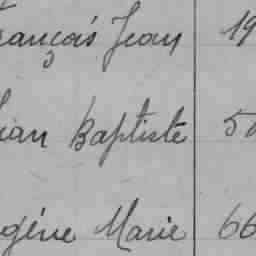 François Jean 19
Jean Baptiste 5
Eugène Marie 66